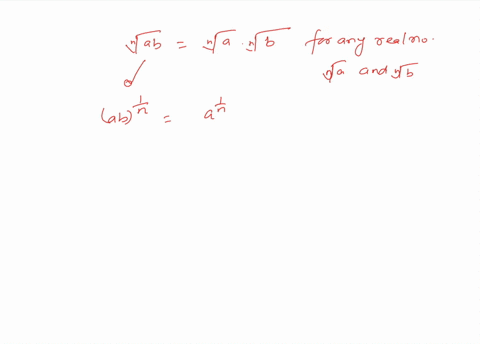 ⁿ√ab = ⁿ√a · ⁿ√b for any real no.
ⁿ√a and ⁿ√b
(ab)^{1/n} = a^{1/n}